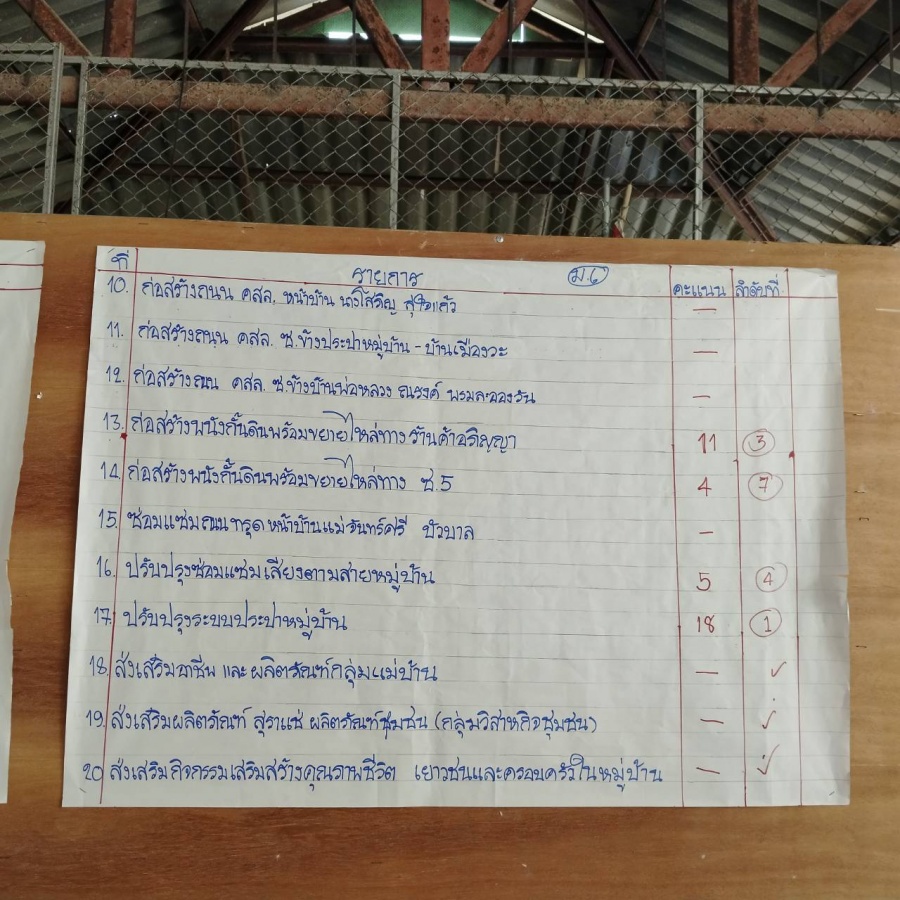 ที่ รายการ คะแนน ลำดับที่
10. ก่อสร้างถนน คสล. หน้าบ้าน —
11. ก่อสร้างถนน คสล. ซ.ข้างประปาหมู่บ้าน - บ้านเมืองวะ —
12. ก่อสร้างถนน คสล. ซ.ข้างบ้านพ่อหลวง ณรงค์ —
13. ก่อสร้างพนังกั้นดินพร้อมขยายไหล่ทาง ร้านค้าอภิญญา 11 3
14. ก่อสร้างพนังกั้นดินพร้อมขยายไหล่ทาง ซ.5 4 7
15. ซ่อมแซมถนนทรุด หน้าบ้านแม่จันทร์ศรี บัวบาล —
16. ปรับปรุงซ่อมแซมเสียงตามสายหมู่บ้าน 5 4
17. ปรับปรุงระบบประปาหมู่บ้าน 18 1
18. ส่งเสริมอาชีพ และ ผลิตภัณฑ์กลุ่มแม่บ้าน — ✓
19. ส่งเสริมผลิตภัณฑ์ สุราแช่ ผลิตภัณฑ์ชุมชน (กลุ่มวิสาหกิจชุมชน) — ✓
20. ส่งเสริมกิจกรรมเสริมสร้างคุณภาพชีวิต เยาวชนและครอบครัวในหมู่บ้าน — ✓